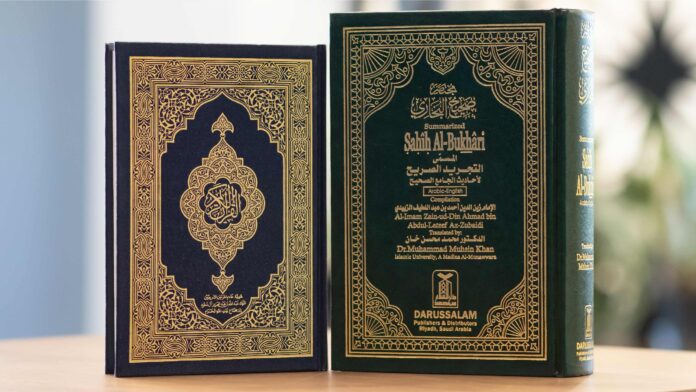 القرآن الكريم
مختصر
صحيح البخاري
Summarized
Ṣaḥîḥ Al-Bukhâri
المسمى
التجريد الصريح
لأحاديث الجامع الصحيح
Arabic-English
Compilation
الإمام زين الدين أحمد بن عبد اللطيف الزبيدي
Al-Imam Zain-ud-Din Ahmad bin
Abdul-Lateef Az-Zubaidi
Translated by:
الدكتور محمد محسن خان
Dr.Muhammad Muhsin Khan
Islamic University, A Madina Al-Munawwara
DARUSSALAM
Publishers & Distributors
Riyadh, Saudi Arabia